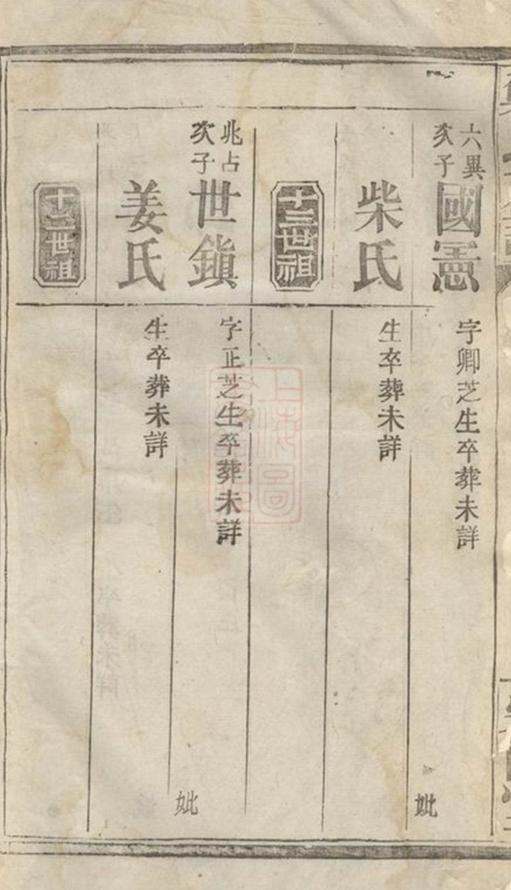 六異
次子
國憲
字卿芝生卒葬未詳
妣
柴氏
生卒葬未詳
十二世祖
兆占
次子
世鎮
字正芝生卒葬未詳
妣
姜氏
生卒葬未詳
十三世祖